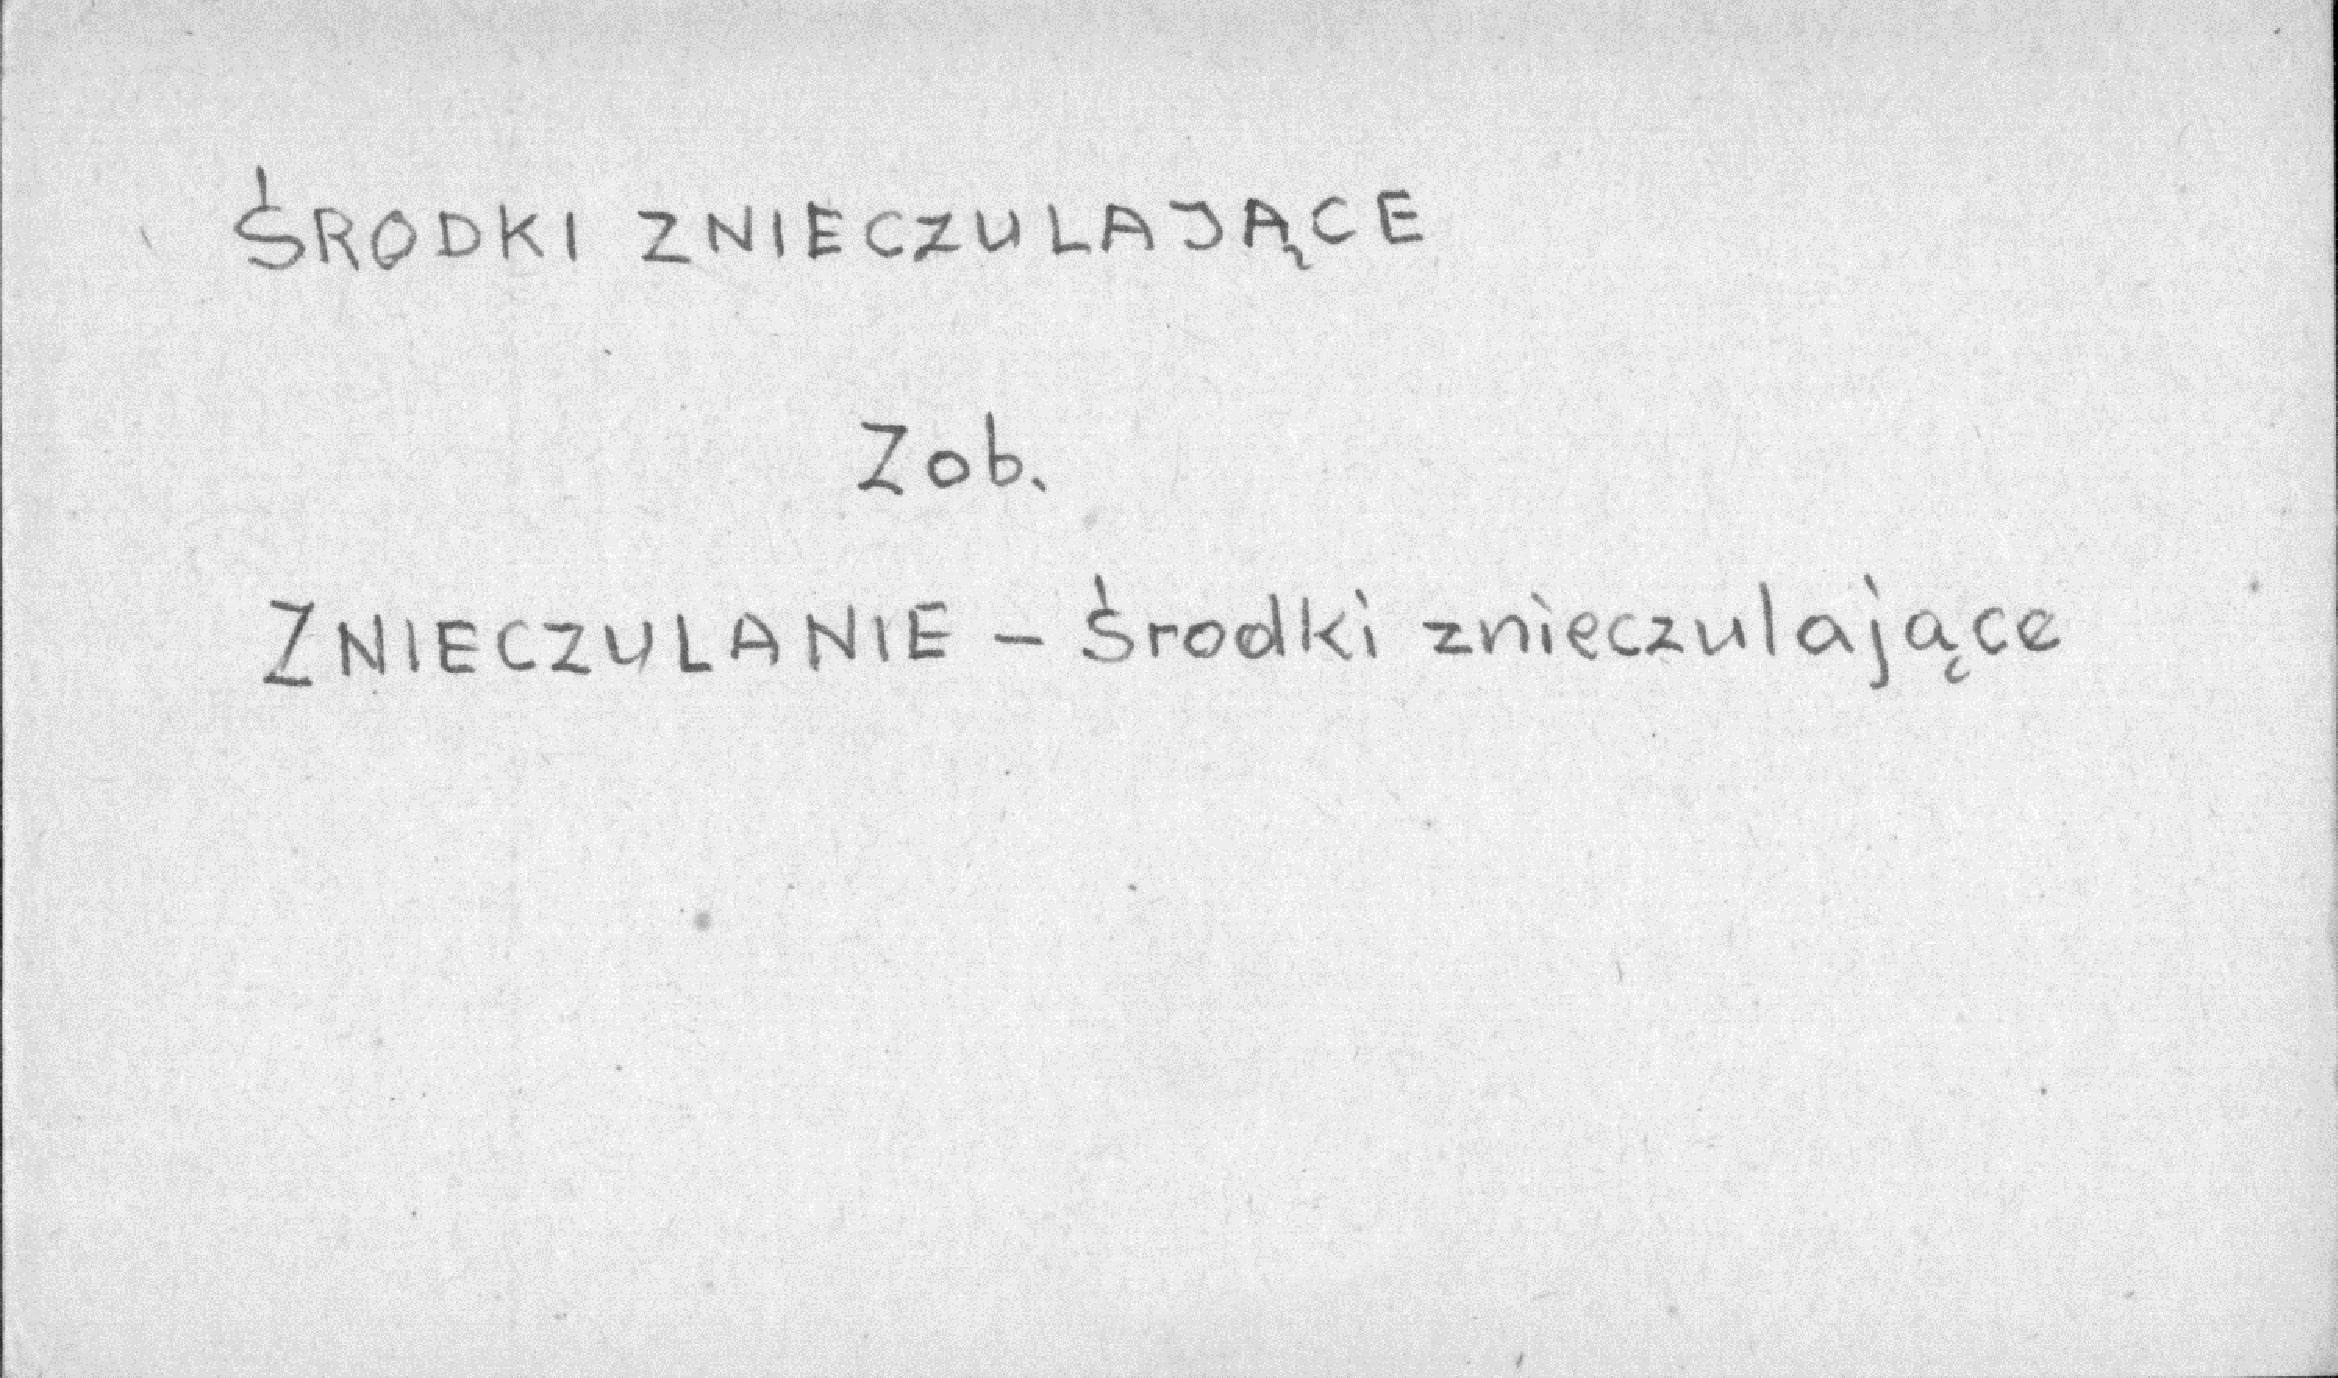 ŚRODKI ZNIECZULAJĄCE
Zob.
ZNIECZULANIE - Środki znieczulające